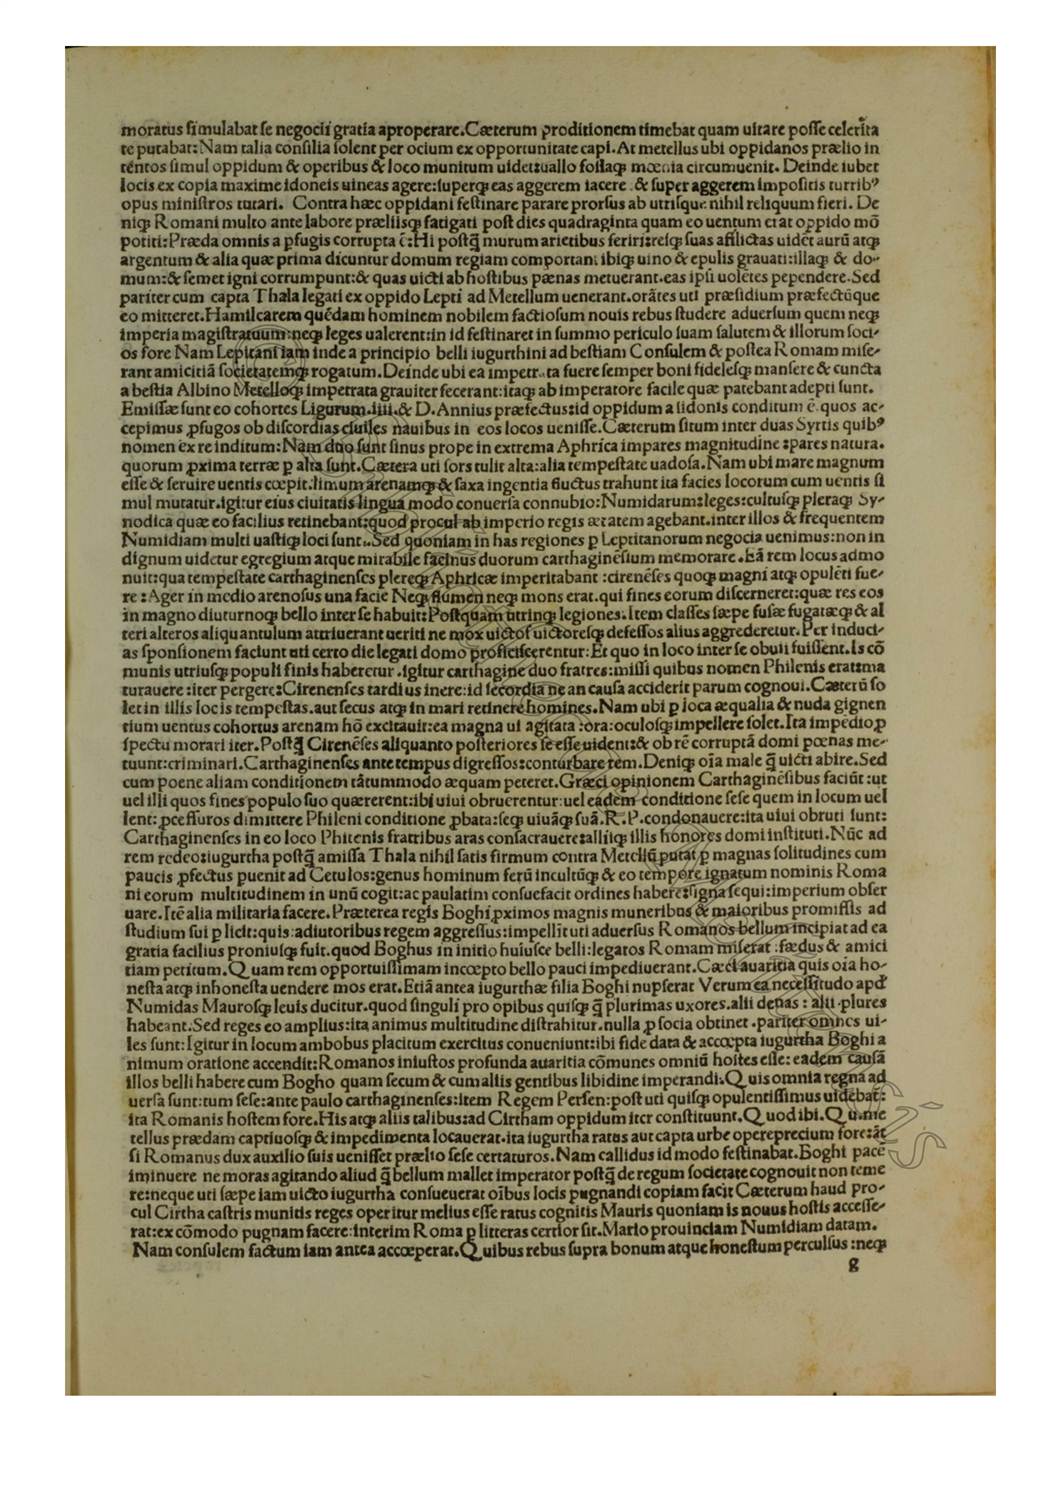 moratus ſimulabat ſe negocii gratia aproperare.Cæterum ꝓditionem timebat quam uitare poſſe celerita
te putabat:Nam talia conſilia ſolent per ocium ex opportunitate capi.At metellus ubi oppidanos prælio in
tētos ſimul oppidum & operibus & loco munitum uidet:uallo foſſaq; mœnia circumuenit. Deinde iubet
locis ex copia maxime idoneis uineas agere:ſuperq; eas aggerem iacere .& ſuper aggerem impoſitis turribꝰ
opus miniſtros tutari. Contra hæc oppidani feſtinare parare prorſus ab utriſque nihil reliquum fieri. De
niq; Romani multo ante labore præliiſq; fatigati poſt dies quadraginta quam eo uentum erat oppido mō
potiti:Præda omnis a ꝑfugis corrupta ē:Hi poſtq̄ murum arietibus feriri:reſq; ſuas afflictas uidēt aurū atq;
argentum & alia quæ prima dicuntur domum regiam comportant ibiq; uino & epulis grauati:illaq; & do-
mum:& ſemet igni corrumpunt:& quas uicti ab hoſtibus pænas metuerant.eas ipſi uolētes pependere.Sed
pariter cum capta Thala legati ex oppido Lepti ad Metellum uenerant.orātes uti præſidium præfectūque
eo mitteret.Hamilcarem quēdam hominem nobilem factioſum nouis rebus ſtudere aduerſum quem neq;
imperia magiſtratuum:neq; leges ualerent:in id feſtinaret in ſummo periculo ſuam ſalutem & illorum ſoci-
os fore Nam Lepitani iam inde a principio belli iugurthini ad beſtiam Conſulem & poſtea Romam miſe-
rant amicitiā ſocietatemq; rogatum.Deinde ubi ea impetrata fuere ſemper boni fideleſq; manſere & cuncta
a beſtia Albino Metelloq; imperata grauiter fecerant:itaq; ab imperatore facile quæ patebant adepti ſunt.
Emiſſæ ſunt eo cohortes Ligurum.iiii.& D.Annius præfectus:id oppidum a ſidonis conditum ē.quos ac-
cepimus ꝓfugos ob diſcordias ciuiles nauibus in eos locos ueniſſe.Cæterum ſitum inter duas Syrtis quibꝰ
nomen ex re inditum:Nam duo ſunt ſinus prope in extrema Aphrica impares magnitudine :pares natura.
quorum ꝓxima terræ ꝑ alta ſunt.Cætera uti ſors tulit alta:alia tempeſtate uadoſa.Nam ubi mare magnum
eſſe & ſeruire uentis cœpit.limum arenamq; & ſaxa ingentia fluctus trahunt ita facies locorum cum uentis ſi
mul mutatur.igitur eius ciuitatis lingua modo conuerſa connubio:Numidarum:leges:cultuſq; pleraq; Sy-
nodica quæ eo facilius retinebant:quod procul ab imperio regis ætatem agebant.inter illos & frequentem
Numidiam multi uaſtiq; loci ſunt. Sed quoniam in has regiones ꝑ Leptitanorum negocia uenimus:non in
dignum uidetur egregium atque mirabile facinus duorum carthaginēſium memorare.Eā rem locus admo
nuit:qua tempeſtate carthaginenſes plereq; Aphricæ imperitabant :cirenēſes quoq; magni atq; opulēti fue-
re :Ager in medio arenoſus una facie Neq; flumen neq; mons erat.qui fines eorum diſcerneret:quæ res eos
in magno diuturnoq; bello inter ſe habuit:Poſtquam utrinq; legiones.Item claſſes ſæpe fuſæ fugatæq; & al
teri alteros aliquantulum attriuerant ueriti ne mox uictoſ uictoreſq; defeſſos alius aggrederetur.Per induci-
as ſponſionem faciunt uti certo die legati domo proficiſcerentur:Et quo in loco inter ſe obuii fuiſſent.Is cō
munis utriuſq; populi finis haberetur .igitur carthagine duo fratres:miſſi quibus nomen Philenis erat:ma
turauere:iter pergere:Cirenenſes tardius iuere:id ſecordia ne an cauſa acciderit parum cognoui.Cæterū ſo
let in illis locis tempeſtas.aut ſecus atq; in mari retinere homines.Nam ubi ꝑ loca æqualia & nuda gignen
tium uentus cohortus arenam hō excitauit:ea magna ui agitata :ora:oculoſq; impellere ſolet.Ita impedio ꝓ
ſpectu morari iter.Poſtq̄ Cirenēſes aliquanto poſteriores ſe eſſe uident:& ob rē corruptā domi pœnas me-
tuunt:criminari.Carthaginenſes ante tempus digreſſos:conturbare rem.Deniq; oīa male q̄ uicti abire.Sed
cum poene aliam conditionem tātummodo æquam peteret.Græci opinionem Carthaginēſibus faciūt:ut
uel illi quos fines populo ſuo quærerent:ibi uiui obruerentur:uel eadem conditione ſeſe quem in locum uel
lent:ꝓceſſuros dimittere Phileni conditione ꝓbata:ſeq; uiuāq; ſuā.R.P.condonauere:ita uiui obruti ſunt:
Carthaginenſes in eo loco Philenis fratribus aras conſacrauere:aliiq; illis honores domi inſtituti.Nūc ad
rem redeo:iugurtha poſtq̄ amiſſa Thala nihil ſatis firmum contra Metellū putat ꝑ magnas ſolitudines cum
paucis ꝓfectus puenit ad Getulos:genus hominum ferū incultūq; & eo tempore ignatum nominis Roma
ni eorum multitudinem in unū cogit:ac paulatim conſuefacit ordines habere:ſigna ſequi:imperium obſer
uare.Itē alia militaria facere.Præterea regis Boghi ꝓximos magnis muneribus & maioribus promiſſis ad
ſtudium ſui ꝑlicit:quis adiutoribus regem aggreſſus:impellit uti aduerſus Romanos bellum incipiat ad ea
gratia facilius proniuſq; fuit.quod Boghus in initio huiuſce belli:legatos Romam miſerat :fœdus & amici
tiam petitum.Quam rem opportuiſſimam incœpto bello pauci impediuerant.Cæci auaritia quis oīa ho-
neſta atq; inhoneſta uendere mos erat.Etiā antea iugurthæ filia Boghi nupſerat Verum ea neceſſitudo apd
Numidas Mauroſq; leuis ducitur.quod ſinguli pro opibus quiſq; q̄ plurimas uxores.alii denas : alii plures
habeant.Sed reges eo amplius:ita animus multitudine diſtrahitur.nulla ꝑ ſocia obtinet .pariter omnes ui-
les ſunt:Igitur in locum ambobus placitum exercitus conueniunt:ibi fide data & accœpta iugurtha Boghi a
nimum oratione accendit:Romanos iniuſtos profunda auaritia cōmunes omniū hoſtes eſſe: eadem cauſā
illos belli habere cum Bogho quam ſecum & cum aliis gentibus libidine imperandi.Quis omnia regna ad
uerſa ſunt:tum ſeſe:ante paulo carthaginenſes:item Regem Perſen:poſt uti quiſq; opulentiſſimus uidebat:
ita Romanis hoſtem fore.His atq; aliis talibus:ad Cirtham oppidum iter conſtituunt.Quod ibi.Q u.me
tellus prædam captiuoſq; & impedimenta locauerat.ita iugurtha ratus aut capta urbe opereprecium fore:āt
ſi Romanus dux auxilio ſuis ueniſſet prælio ſeſe certaturos.Nam callidus id modo feſtinabat.Boghi pacē
iminuere ne moras agitando aliud q̄ bellum mallet imperator poſtq̄ de regum ſocietate cognouit non teme
re:neque uti ſæpe iam uicto iugurtha conſueuerat oībus locis pugnandi copiam facit Cæterum haud pro-
cul Cirtha caſtris munitis reges operitur melius eſſe ratus cognitis Mauris quoniam is nouus hoſtis acceſſe-
rat:ex cōmodo pugnam facere:interim Roma ꝑ litteras certior fit.Mario prouinciam Numidiam datam.
Nam conſulem factum iam antea accœperat.Quibus rebus ſupra bonum atque honeſtum perculſus :neq;
g